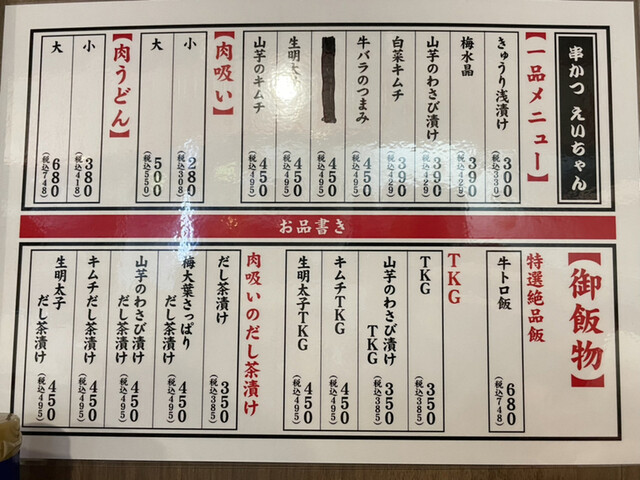 串かつ えいちゃん
【一品メニュー】
きゅうり浅漬け 300 (税込330)
梅水晶 390 (税込429)
山芋のわさび漬け 390 (税込429)
白菜キムチ 390 (税込429)
牛バラのつまみ 450 (税込495)
450 (税込495)
生明太 450 (税込495)
山芋のキムチ 450 (税込495)
【肉吸い】
小 280 (税込308)
大 500 (税込550)
【肉うどん】
小 380 (税込418)
大 680 (税込748)
お品書き
【御飯物】
特選絶品飯
牛トロ飯 680 (税込748)
TKG
TKG 350 (税込385)
山芋のわさび漬け TKG 350 (税込385)
キムチTKG 450 (税込495)
生明太子TKG 450 (税込495)
肉吸いのだし茶漬け
だし茶漬け 350 (税込385)
梅大葉さっぱり だし茶漬け 450 (税込495)
山芋のわさび漬け だし茶漬け 450 (税込495)
キムチだし茶漬け 450 (税込495)
生明太子 だし茶漬け 450 (税込495)